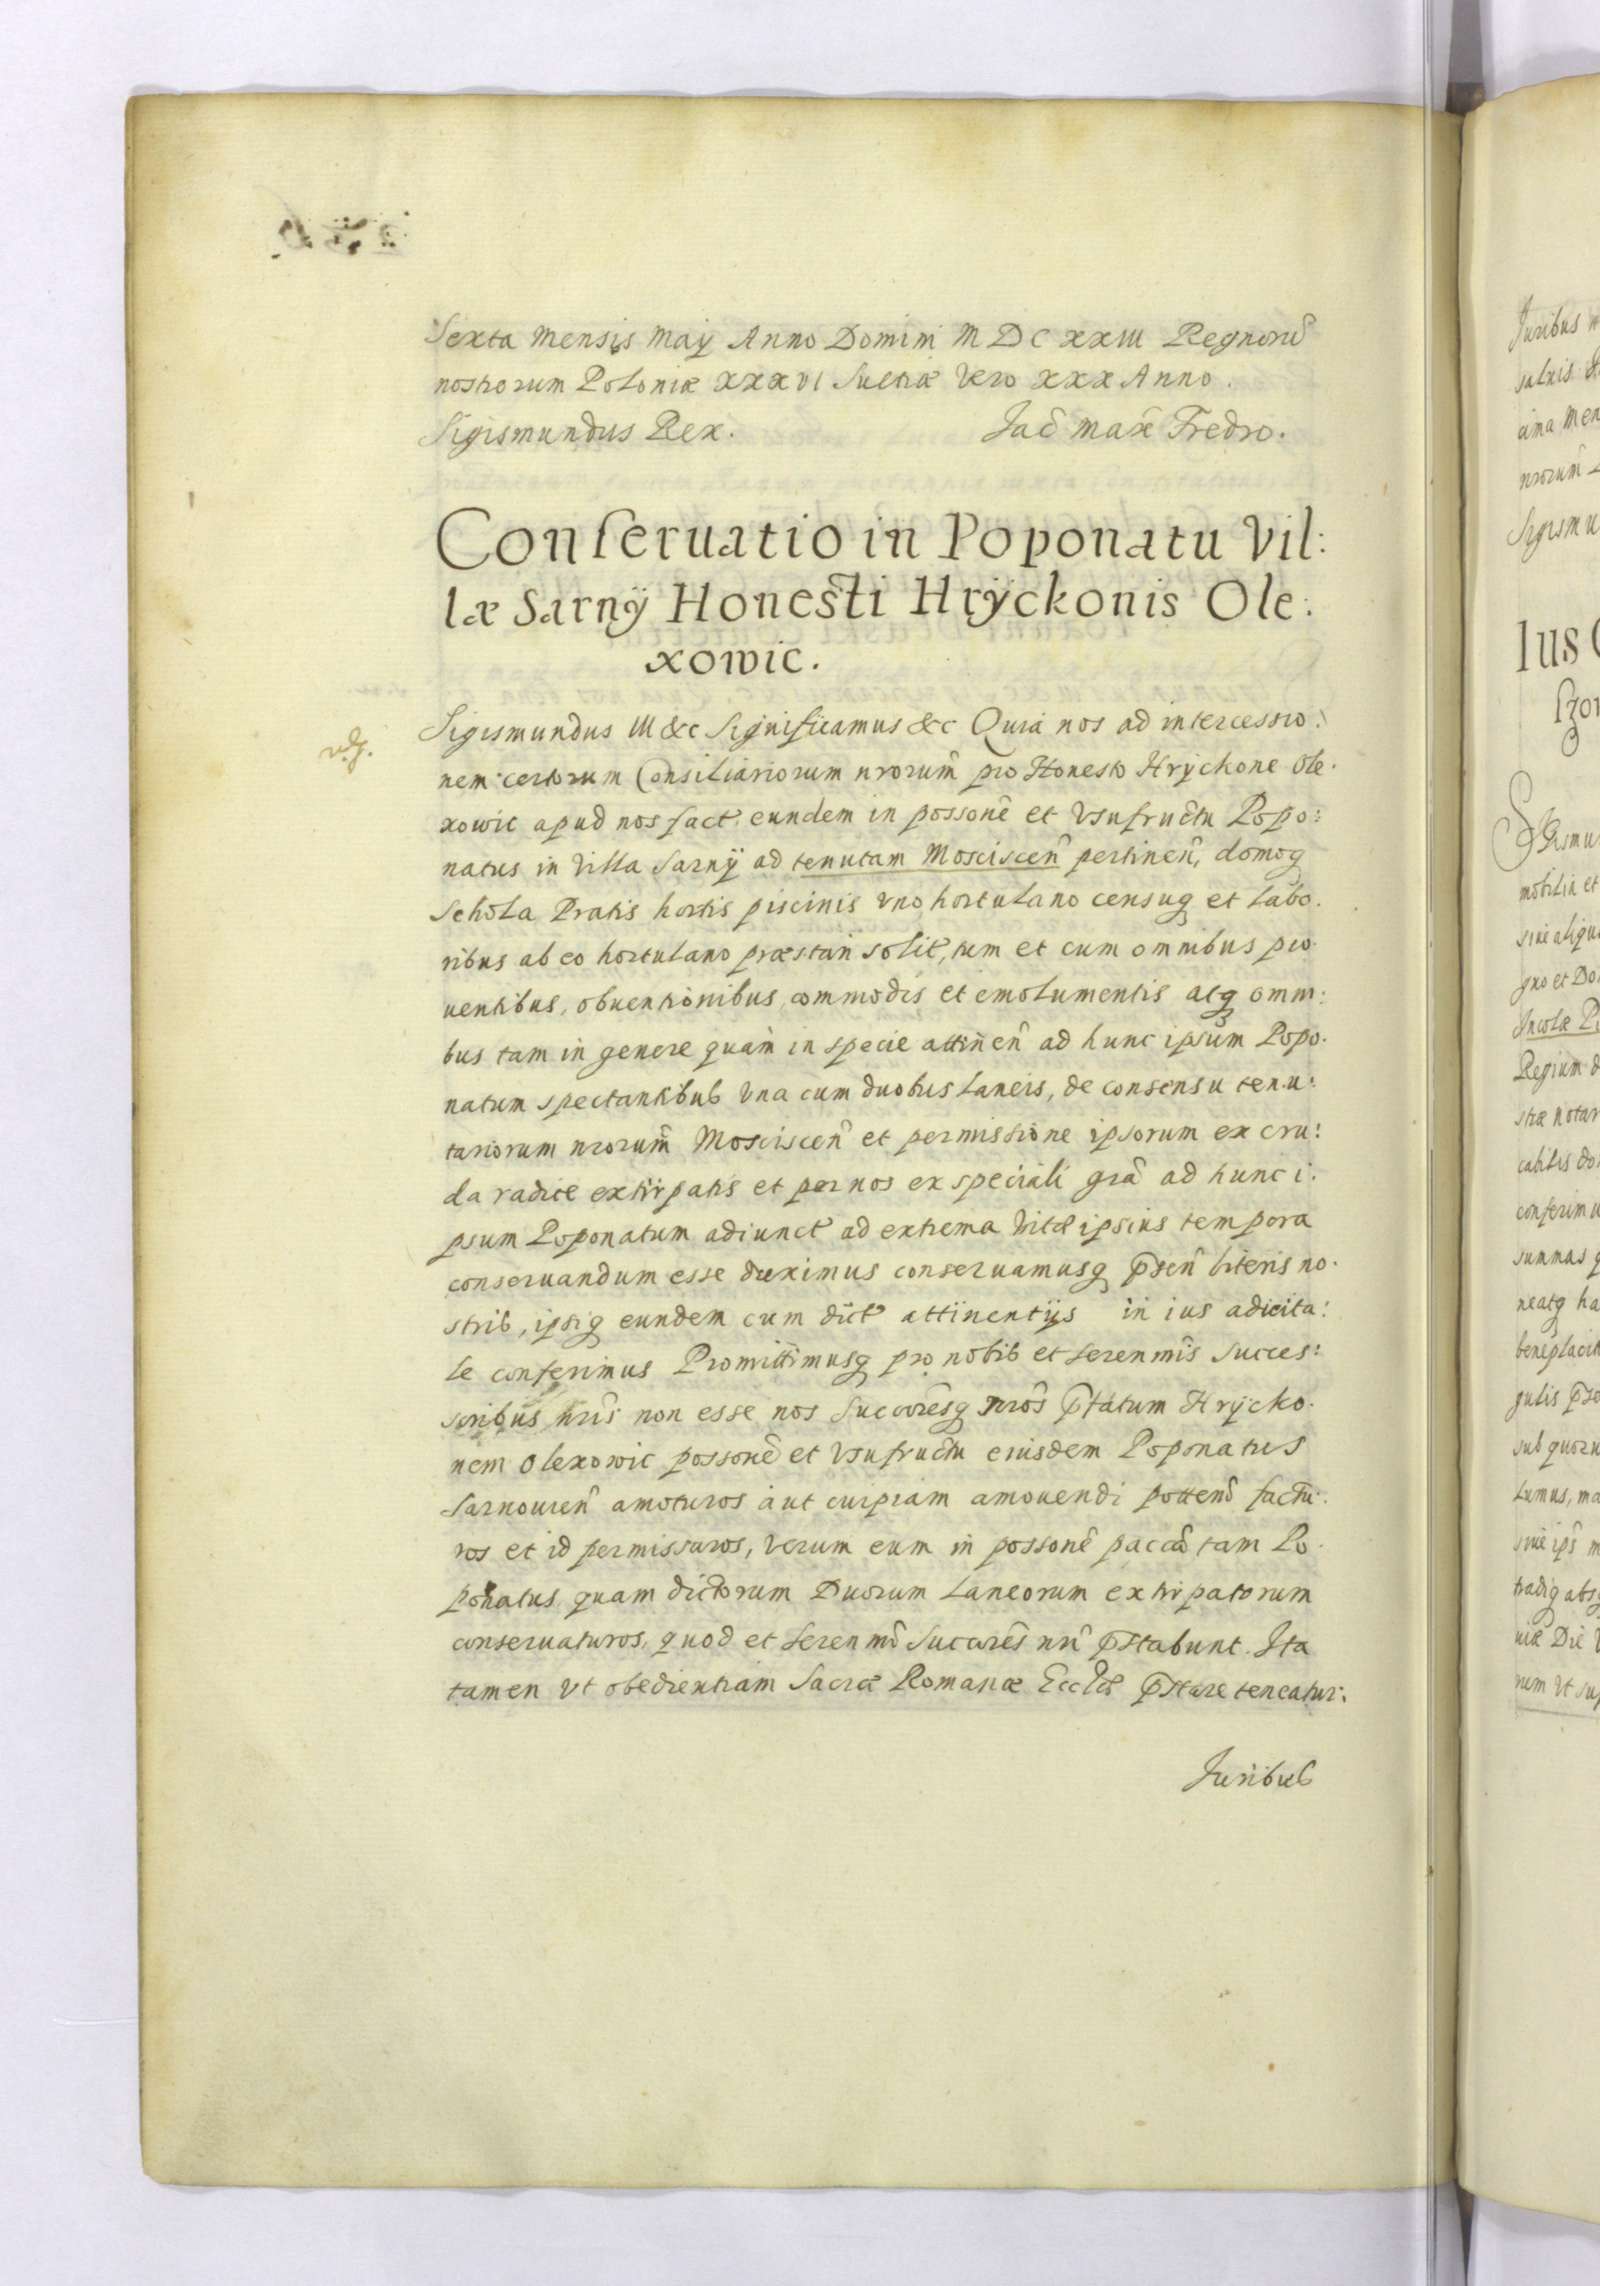 Sexta Mensis Maÿ Anno Domini M D C XXIII Regnorũ
nostrorum Poloniæ XXXVI Suetiæ Vero XXX Anno.
Sigismundus Rex. Jac̃ Max̃ Fredro.
Conseruatio in Poponatu Vil:
læ Sarnÿ Honesti Hrÿckonis Ole:
xowic.
Sigismundus III &c Significamus &c Quia nos ad intercessio:
nem certorum Consiliariorum nrorum̃ pro Honesto Hrÿckone Ole.
xowic apud nos fact. eundem in possonẽ et Vsufructu Popo:
natus in Villa Sarnÿ ad tenutam Mosciscen̄ pertinen̄, domoq
Schola Pratis hortis piscinis vno hortulano censuq et labo.
ribus ab eo hortulano præstari solit, tum et cum omnibus pro.
uentibus, obuentionibus, commodis et emolumentis atq omni:
bus tam in genere quam in specie attinen̄ ad hunc ipsum Popo.
natum spectantibus Vna cum duobus Laneis, de consensu tenu:
tariorum nrorum̃ Mosciscen̄ et permissione ipsorum ex cru:
da radice extirpatis et per nos ex speciali grã ad hunc i.
psum Poponatum adiunct ad extrema Vitæ ipsius tempora
conseruandum esse duximus conseruamusq p̃sen̄ literis no.
stris, ipsiq eundem cum dict attinentijs in ius aduita:
le conferimus Promittimusq pro nobis et Serenmis̃ Succes:
soribus nris̃ non esse nos Succoresq̃ nros̃ p̃fatum Hrÿcko.
nem Olexowic possonẽ et Vsufructu eiusdem Poponatus
Sarnouien̄ amoturos aut cuipiam amouendi pottem̃ factu:
ros et id permissuros, Verum eum in possonẽ paccã tam Po.
ponatus quam dictorum Duorum Laneorum extirpatorum
conseruaturos, quod et Serenmĩ Succores̃ nrĩ p̃stabunt. Ita
tamen Vt obedientiam Sacræ Romanæ Eccl̃æ p̃stare teneatur:
Juribus